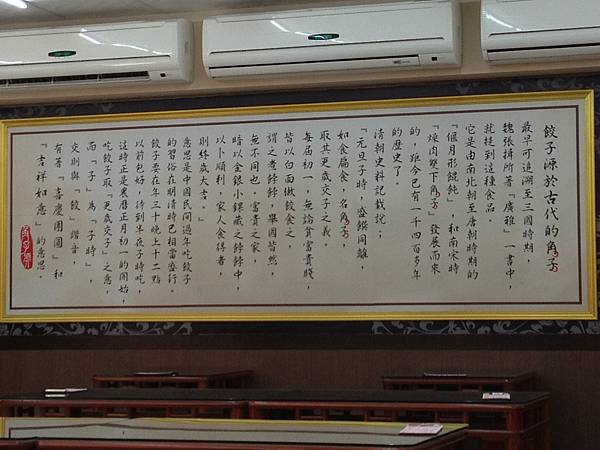 餃子源於古代的角子
最早可追溯至三國時期，
魏張揖所著「廣雅」一書中，
就提到這種食品
它是由南北朝至唐朝時期的
「偃月形餛飩」，和南宋時
「燥肉雙下角子」發展而來
的，距今已有一千四百多年
的歷史了。
清朝史料記載說：
「元旦子時，盛饌同離，
如食扁食，名角子，
取其更歲交子之義。
每屆初一，無論貧富貴賤，
皆以白面做餃食之
謂之煮餑餑，舉國皆然，
無不同也，富貴之家
暗以金銀小錁藏之餑餑中，
以卜順利，家人食得者，
則終歲大吉。」
意思是中國民間過年吃餃子
的習俗在明清時已相當盛行。
餃子要在年三十晚上十二點
以前包好，待到半夜子時吃，
這時正是農曆正月初一的開始，
吃餃子取「更歲交子」之意，
而「子」為「子時」，
交則與「餃」諧音，
有著「喜慶團圓」和
「吉祥如意」的意思。